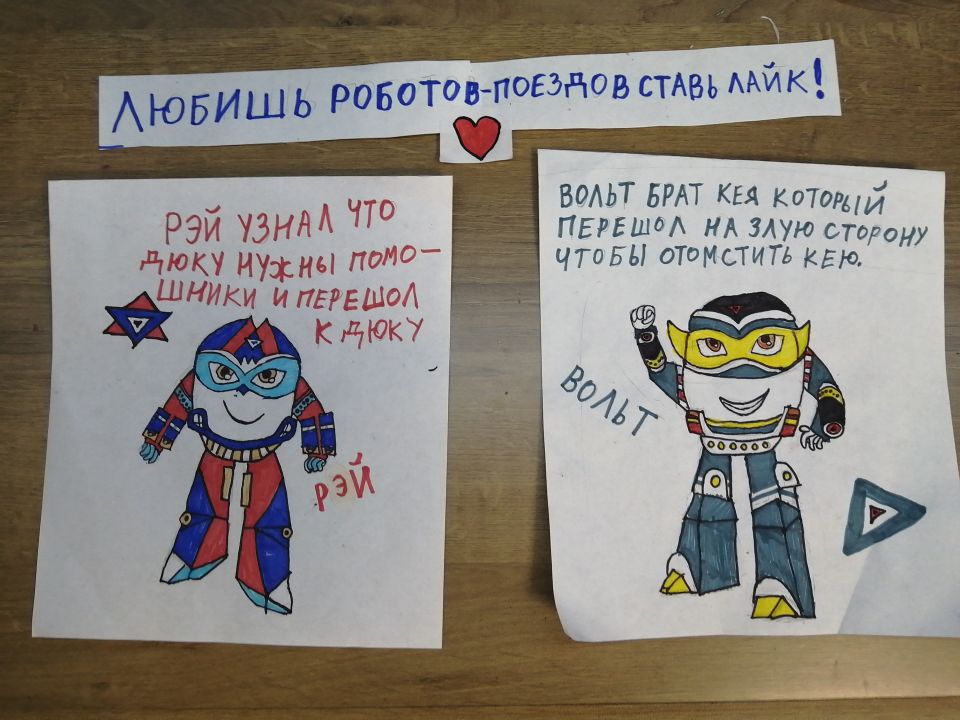 ЛЮБИШЬ РОБОТОВ-ПОЕЗДОВ СТАВЬ ЛАЙК!
РЭЙ УЗНАЛ ЧТО
ДЮКУ НУЖНЫ ПОМО-
ШНИКИ И ПЕРЕШОЛ
К ДЮКУ
РЭЙ
ВОЛЬТ БРАТ КЕЯ КОТОРЫЙ
ПЕРЕШОЛ НА ЗЛУЮ СТОРОНУ
ЧТОБЫ ОТОМСТИТЬ КЕЮ.
ВОЛЬТ